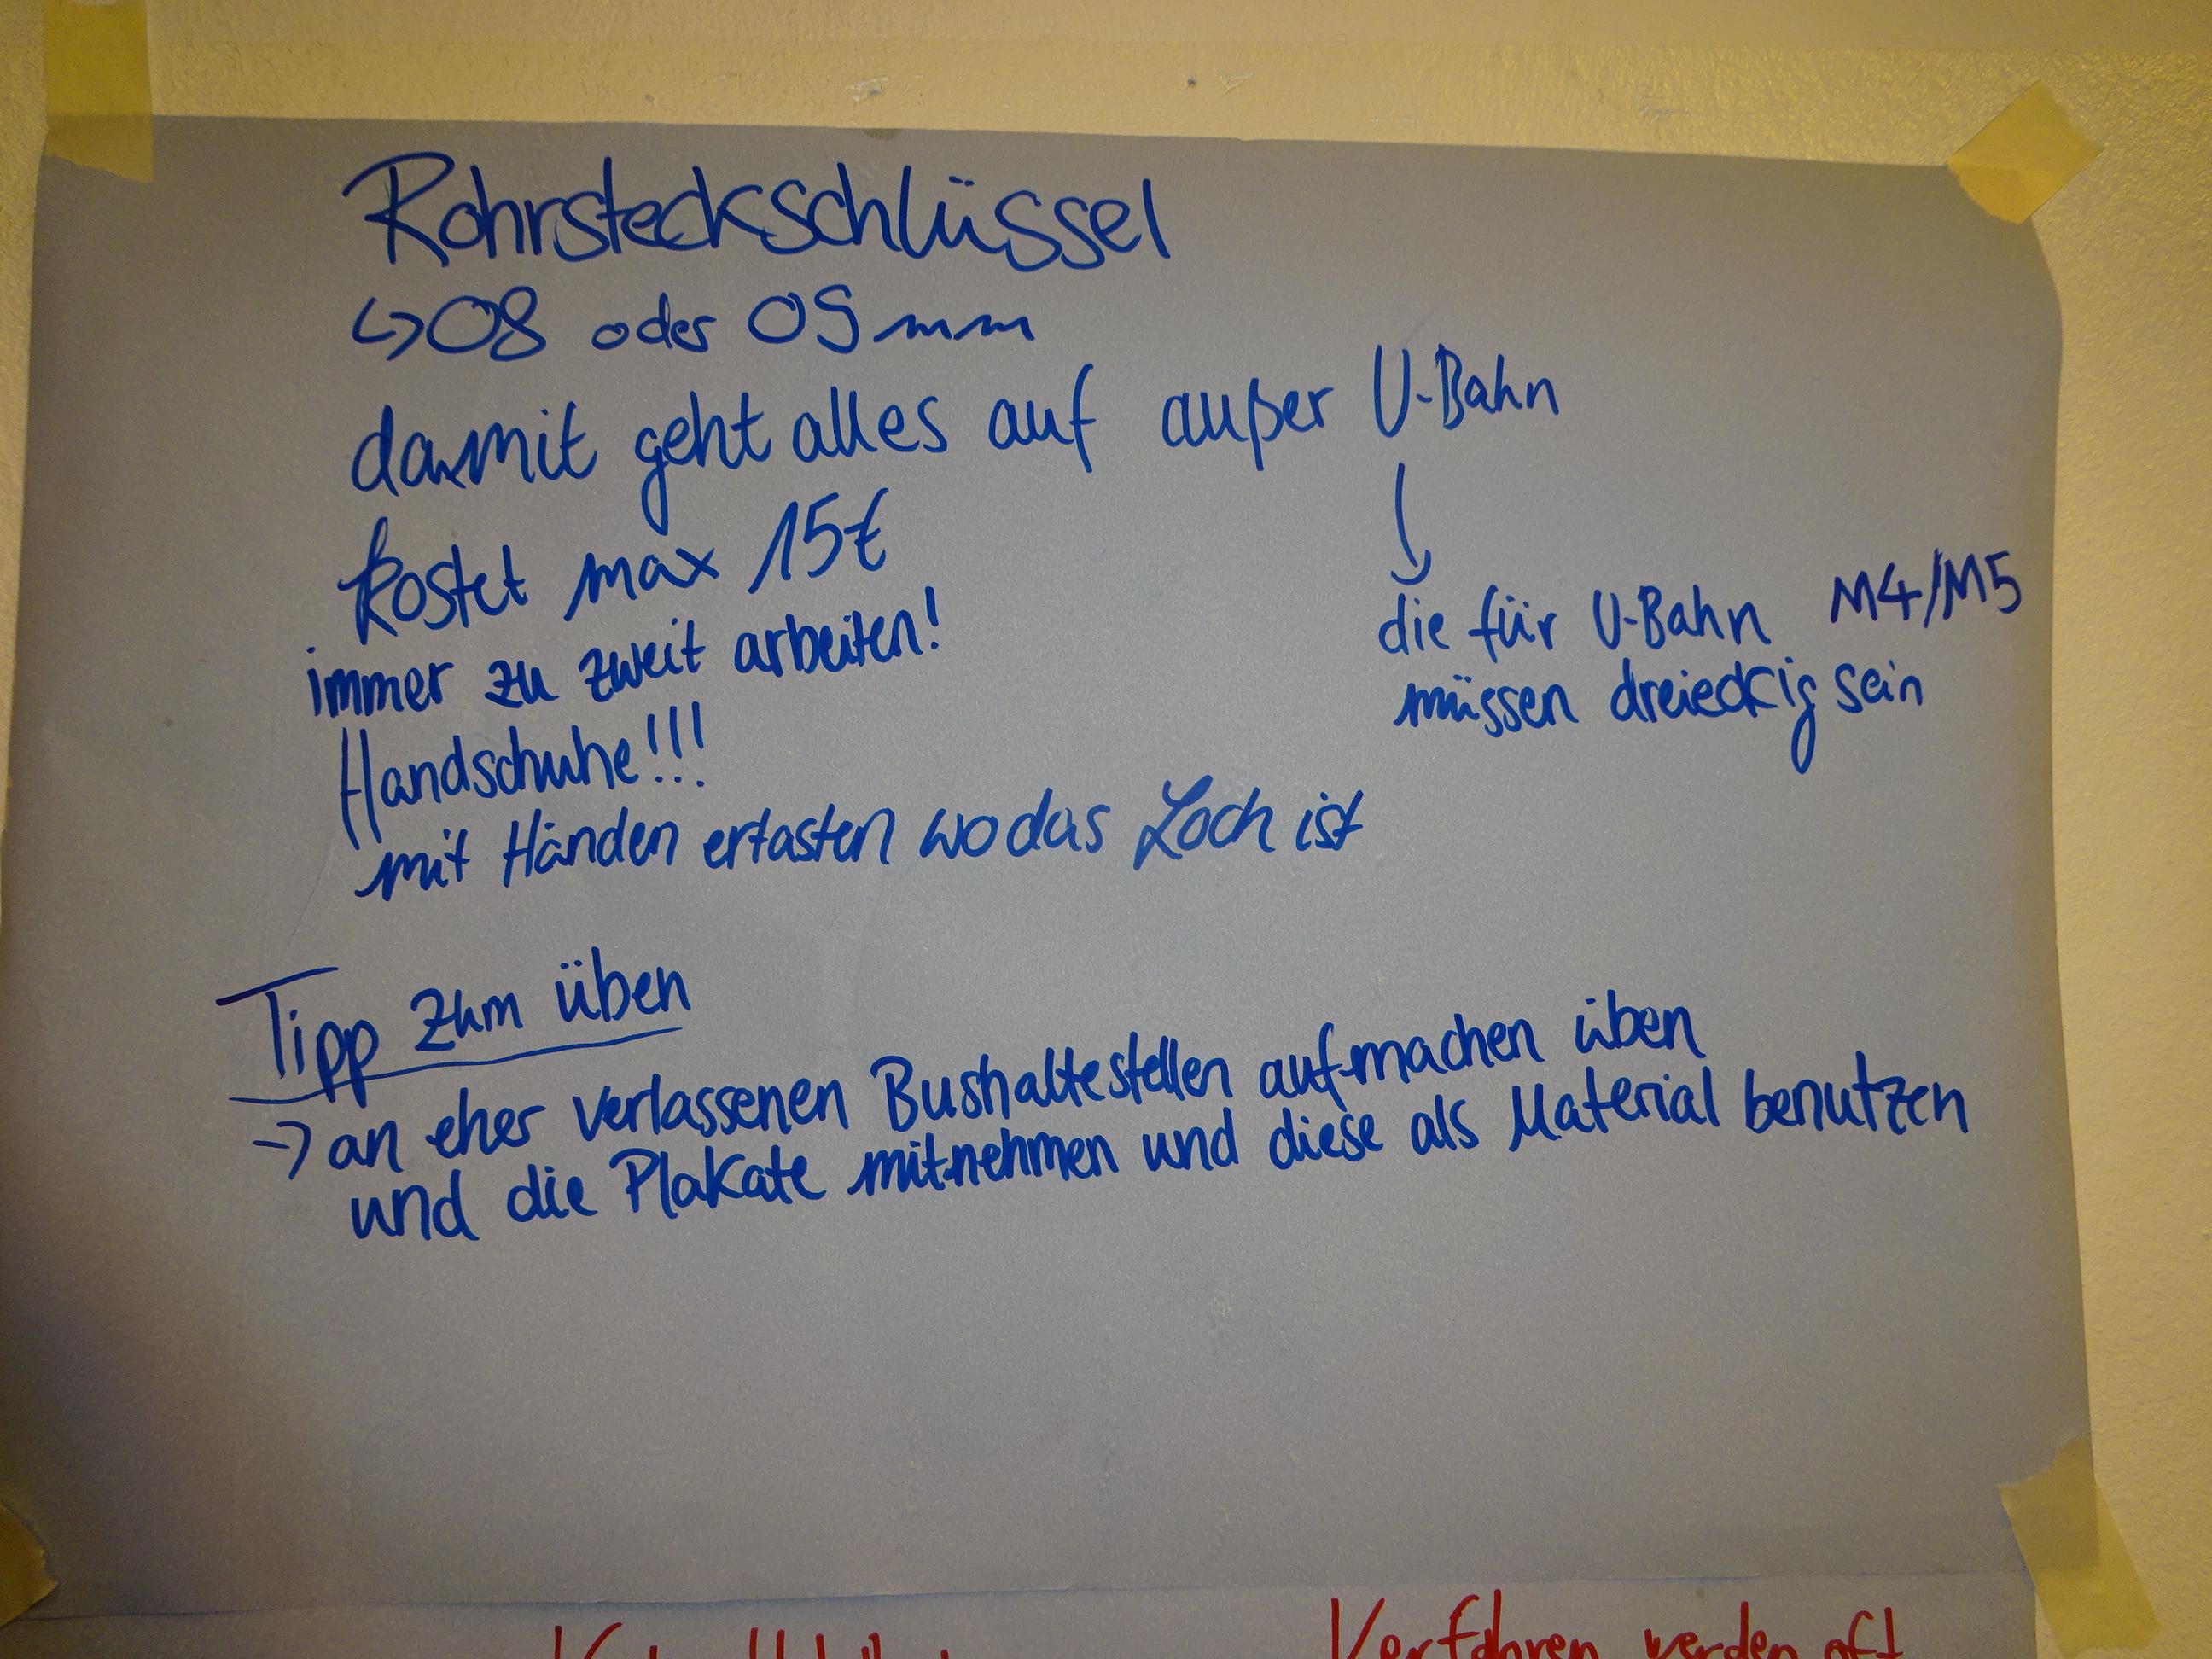 Rohrsteckschlüssel
↳ 08 oder 09 mm
damit geht alles auf außer U-Bahn
kostet max 15€
die für U-Bahn M4/M5
müssen dreieckig sein
immer zu zweit arbeiten!
Handschuhe!!!
mit Händen ertasten wo das Loch ist
Tipp zum üben
→ an eher verlassenen Bushaltestellen aufmachen üben
und die Plakate mitnehmen und diese als Material benutzen
Verfahren werden oft